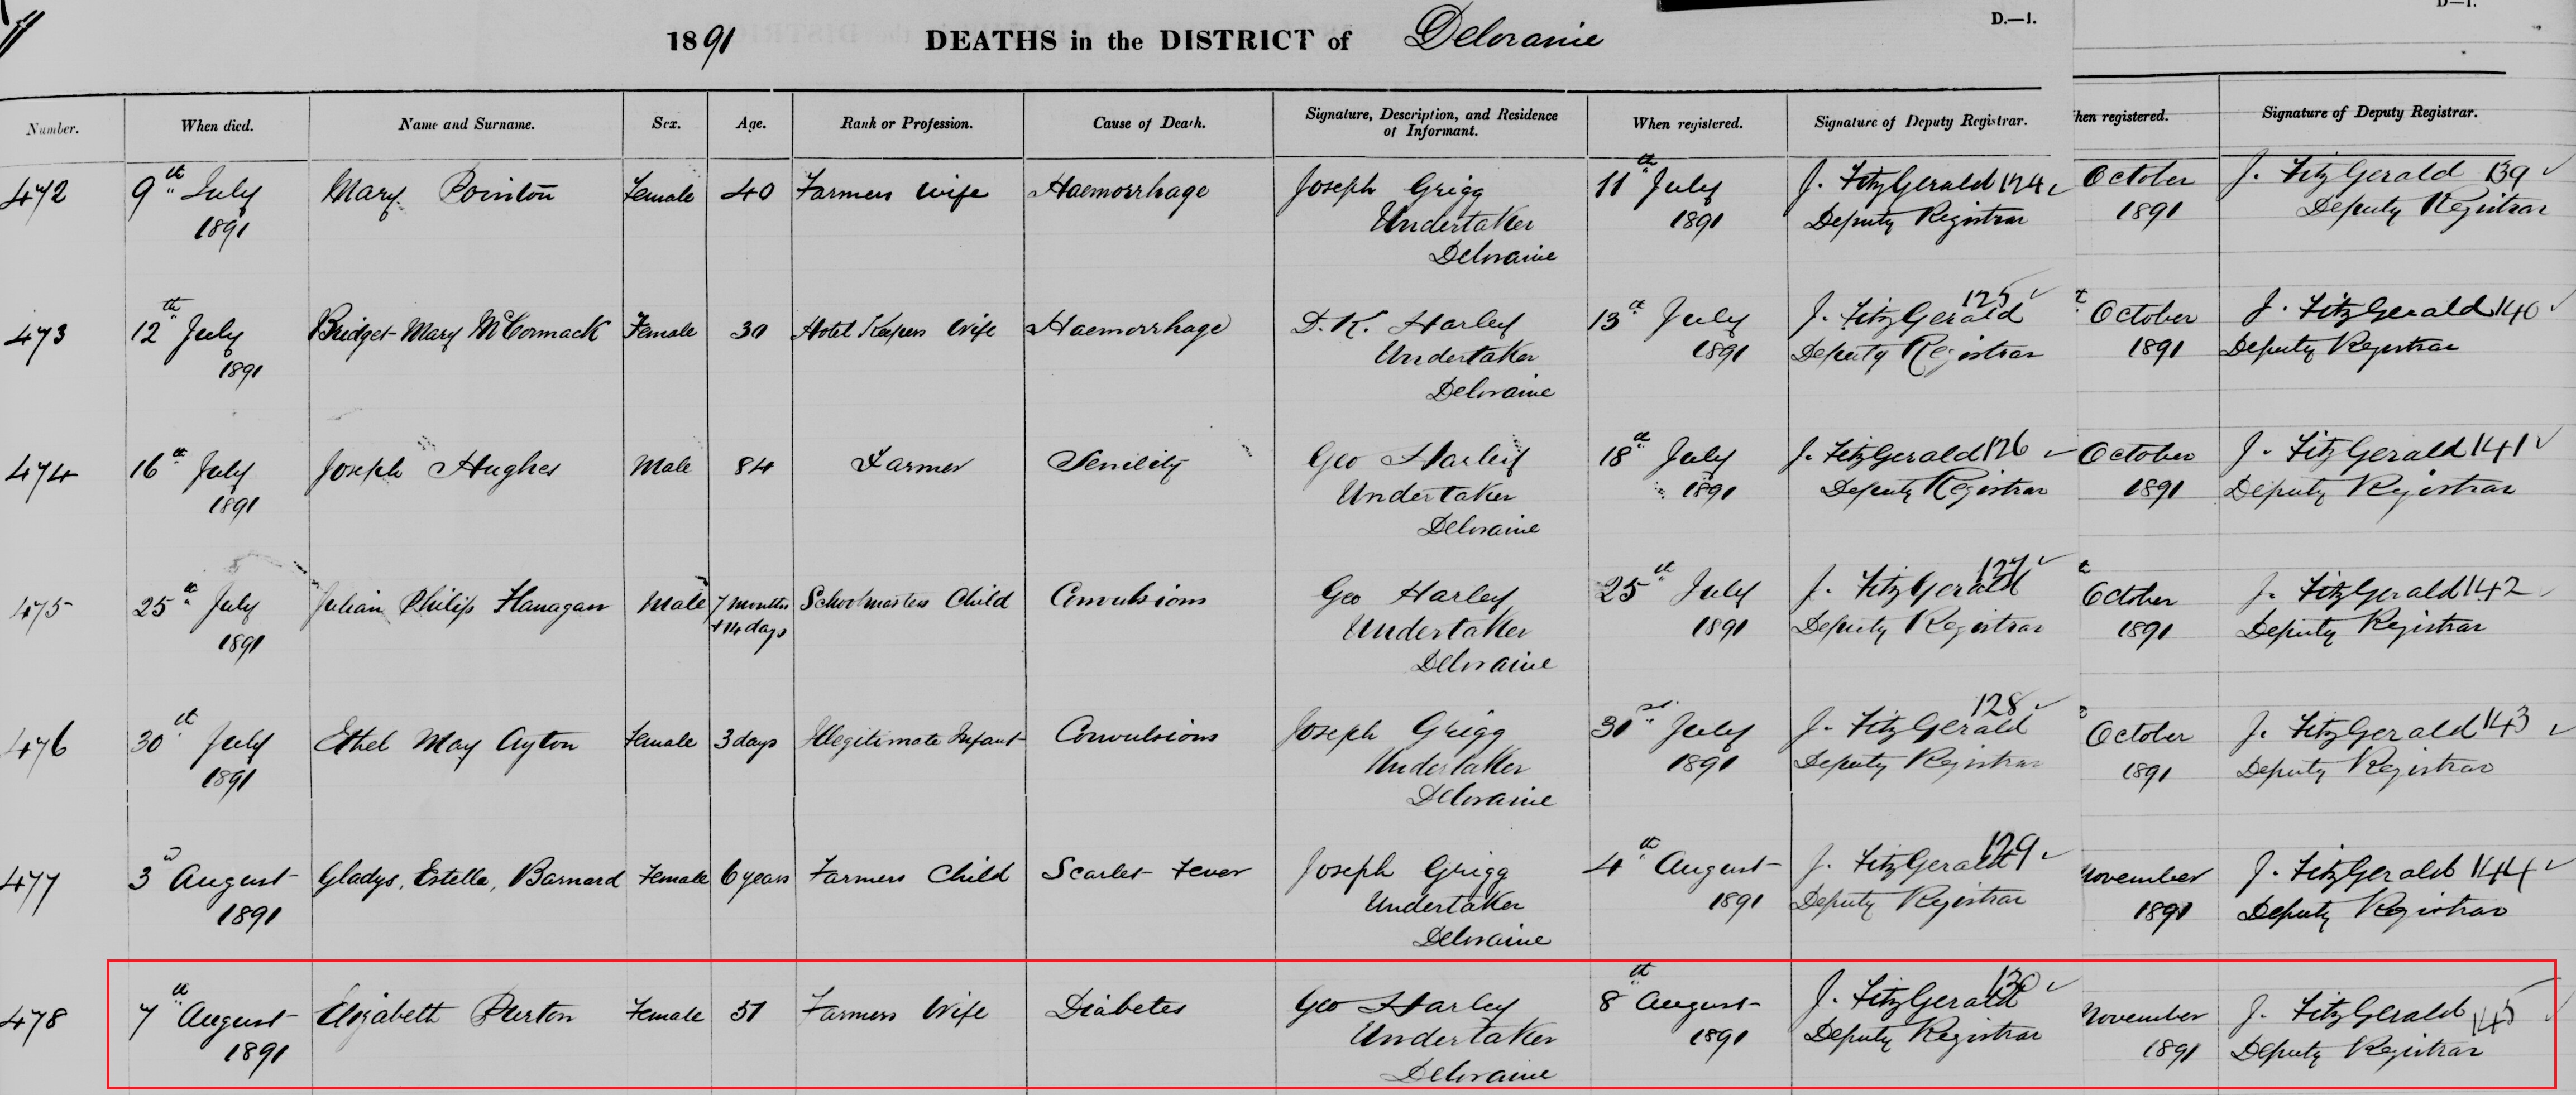 1891 DEATHS in the DISTRICT of Deloraine D.—1.
D—1.
Number. When died. Name and Surname. Sex. Age. Rank or Profession. Cause of Death. Signature, Description, and Residence of Informant. When registered. Signature of Deputy Registrar. hen registered. Signature of Deputy Registrar.
472 9th July Mary Pointon Female 40 Farmers Wife Haemorrhage Joseph Grigg 11th July J. FitzGerald 124 October J. FitzGerald 139
1891 Undertaker 1891 Deputy Registrar 1891 Deputy Registrar
Deloraine
473 12th July Bridget Mary McCormack Female 30 Hotel Keepers Wife Haemorrhage D. K. Harley 13th July J. FitzGerald 125 October J. FitzGerald 140
1891 Undertaker 1891 Deputy Registrar 1891 Deputy Registrar
Deloraine
474 16th July Joseph Hughes Male 84 Farmer Senility Geo Harley 18th July J. FitzGerald 126 October J. FitzGerald 141
1891 Undertaker 1891 Deputy Registrar 1891 Deputy Registrar
Deloraine
475 25th July Julian Philip Flanagan Male 7 months Schoolmasters Child Convulsions Geo Harley 25th July J. FitzGerald 127 October J. FitzGerald 142
1891 +14 days Undertaker 1891 Deputy Registrar 1891 Deputy Registrar
Deloraine
476 30th July Ethel May Ayton Female 3 days Illegitimate Infant Convulsions Joseph Grigg July J. FitzGerald 128 October J. FitzGerald 143
1891 Undertaker 1891 Deputy Registrar 1891 Deputy Registrar
Deloraine
477 3d August Gladys, Estella, Barnard Female 6 years Farmers Child Scarlet Fever Joseph Grigg 4th August J. FitzGerald 129 November J. FitzGerald 144
1891 Undertaker 1891 Deputy Registrar 1891 Deputy Registrar
Deloraine
478 7th August Elizabeth Purton Female 51 Farmers Wife Diabetes Geo Harley 8th August J. FitzGerald 130 November J. FitzGerald 145
1891 Undertaker 1891 Deputy Registrar 1891 Deputy Registrar
Deloraine